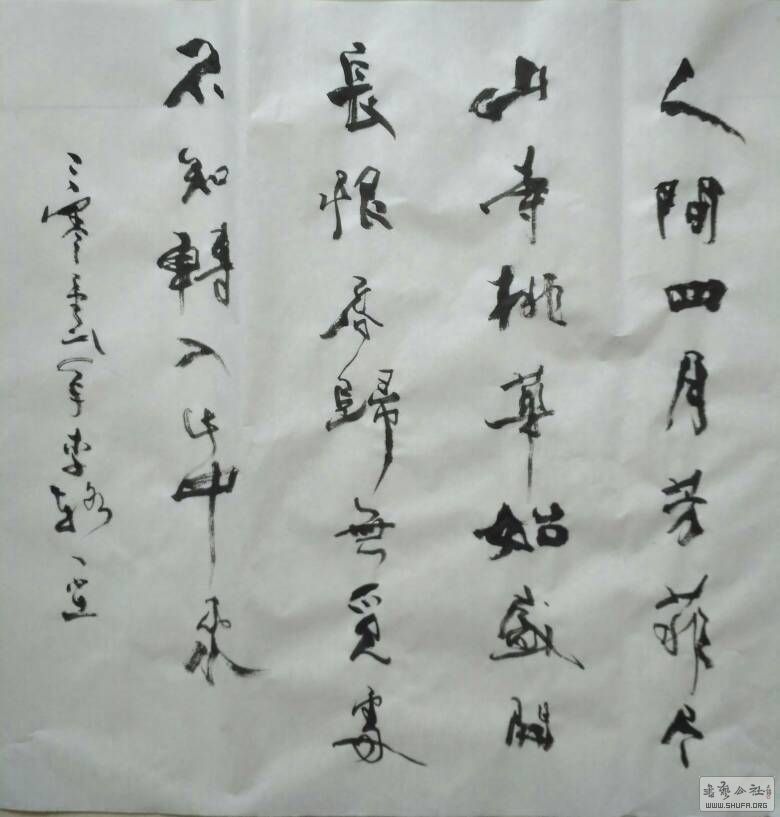 人間四月芳菲尽
山寺桃華始盛開
長恨春歸無覓處
不知轉入此中來
二零壹弍年李
書藝公社
WWW.SHUFA.ORG